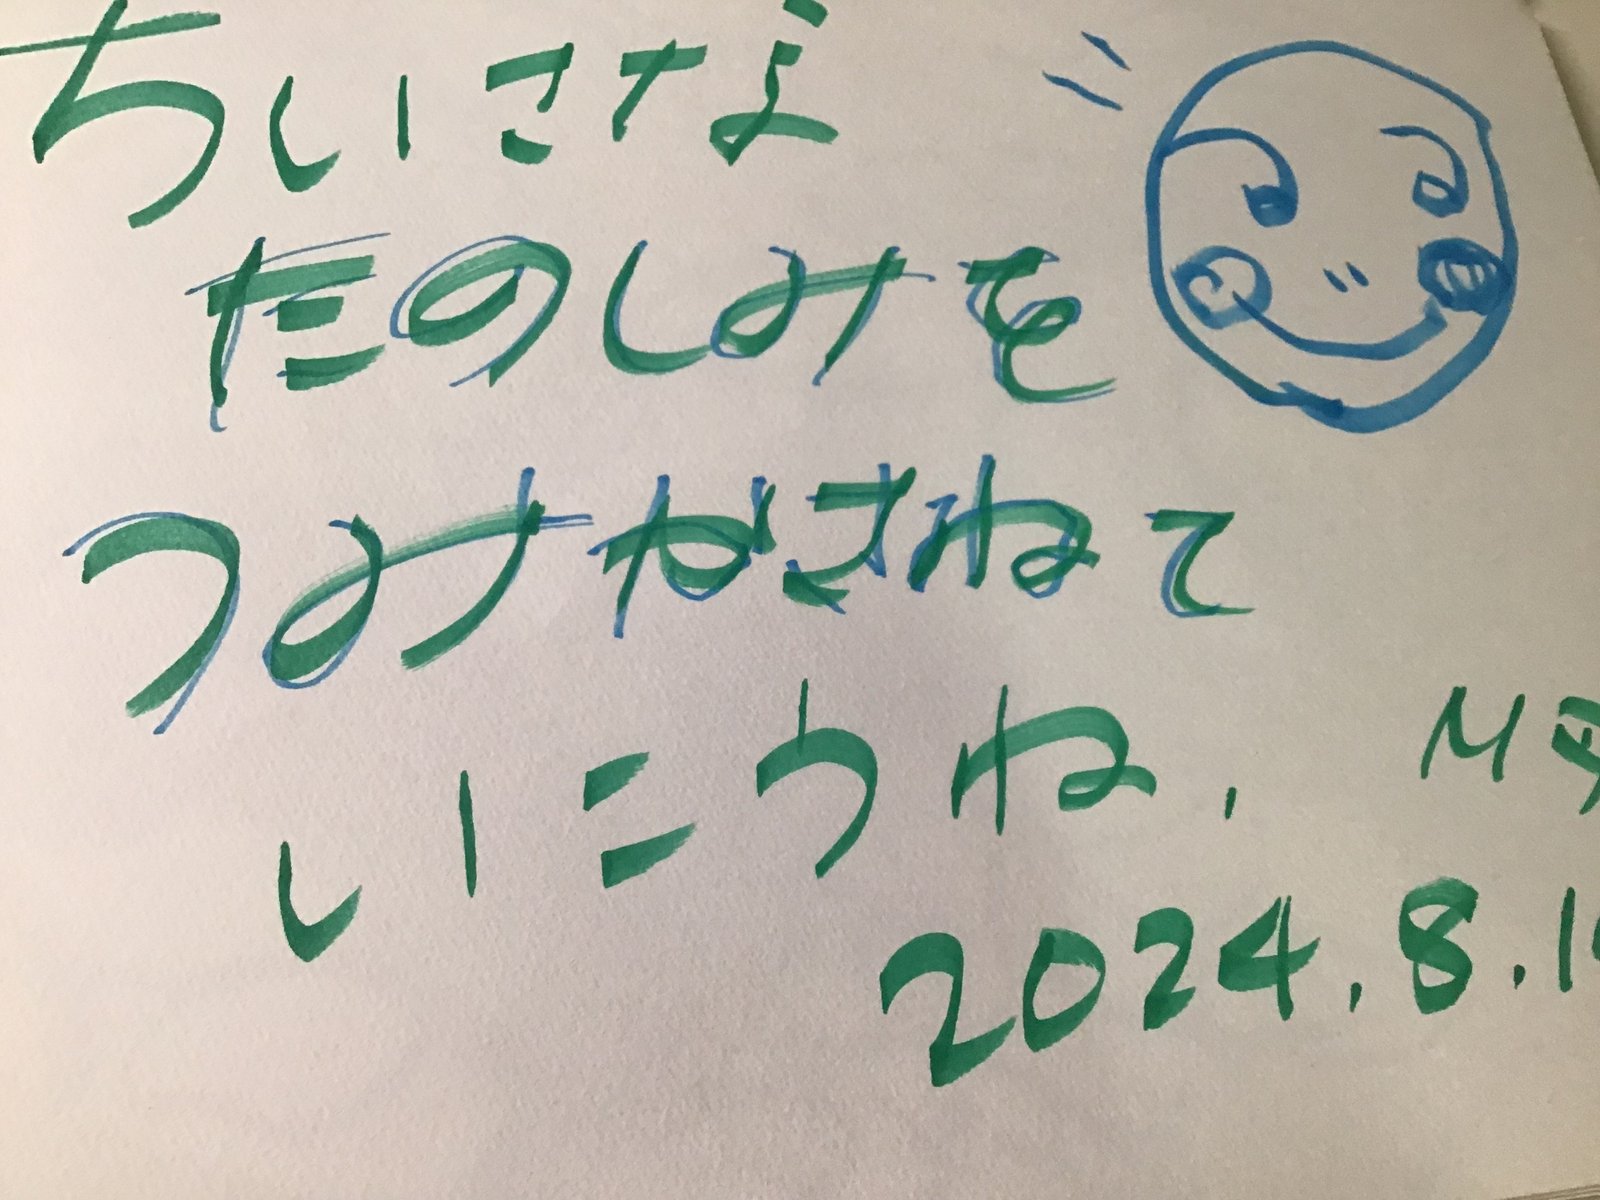 ちいさな
たのしみを
つみかさねて
いこうね.
2024.8.1